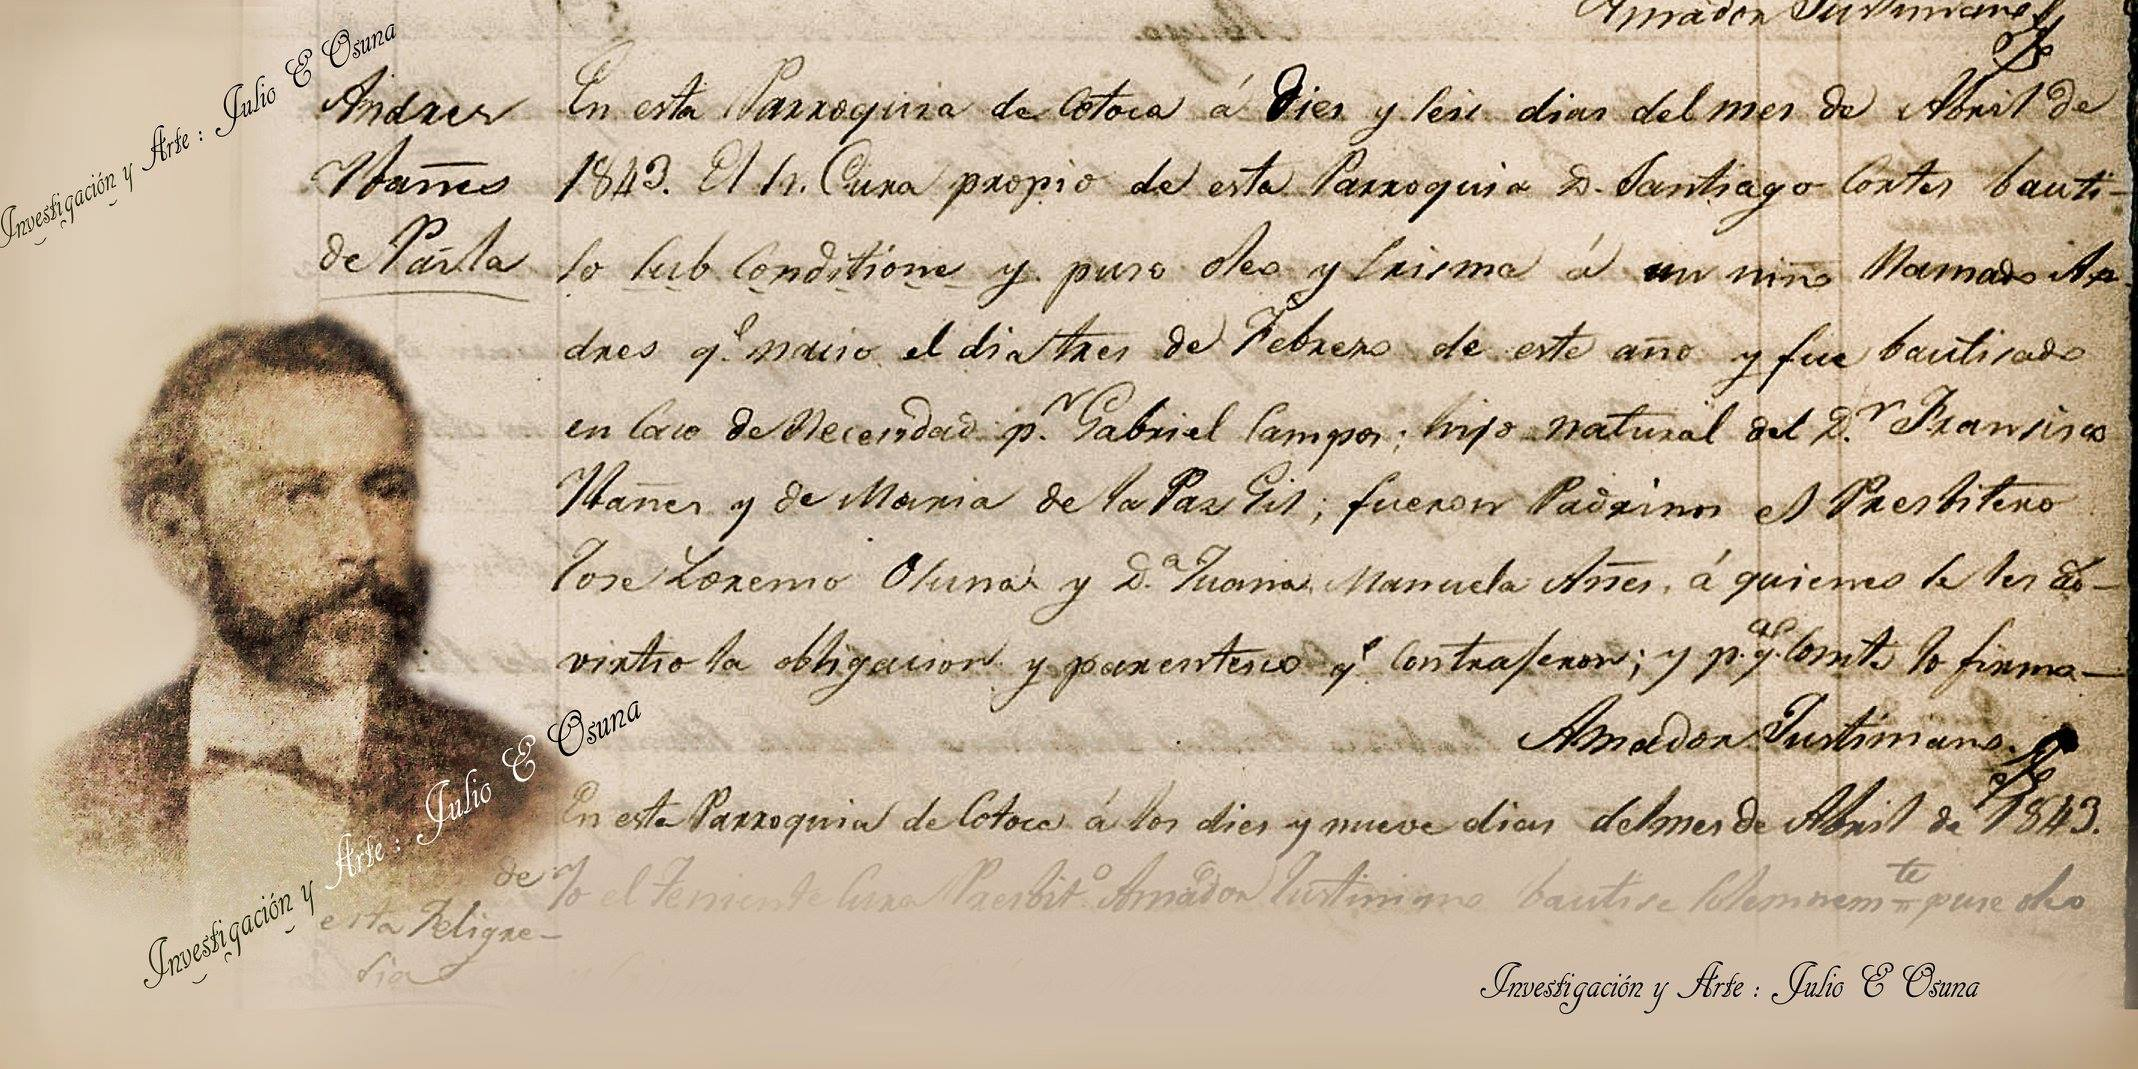 Amador Justiniano
Investigación y Arte : Julio E Osuna
Andres
Ybañes
de
En esta Parroquia de Cotoca á Dies y seis dias del mes de Abril de
1843. El Sr. Cura propio de esta Parroquia D. Santiago Cortes bauti-
so sub conditione y puso oleo y Crisma á un niño llamado An-
dres q.e nacio el dia tres de Febrero de este año y fue bautisado
en Caso de Necesidad p.r Gabriel Campos; hijo natural del D.r Francisco
Ybañes y de Maria de la Paz Gil; fueron Padrinos el Presbitero
Jose Lorenso Osuna y D.a Juana Manuela Añes, á quienes se les ad-
virtio la obligacion y parentesco q.e contrageron; y p.a q.e Conste lo firma-
Amador Justiniano
Investigación y Arte : Julio E Osuna
En esta Parroquia de Cotoca á los dies y nueve dias del mes de Abril de 1843.
de Yo el Teniente Cura Presbit.o Amador Justiniano bautise Solemnem.te puse oleo
esta Feligre-
sia
Investigación y Arte : Julio E Osuna